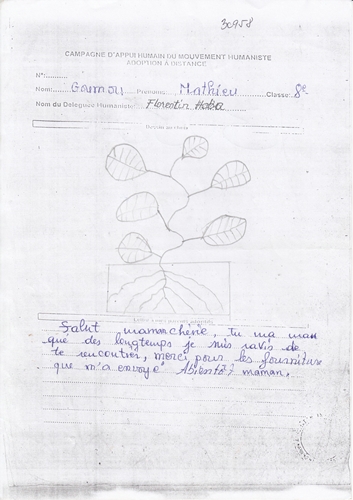 30958
CAMPAGNE D'APPUI HUMAIN DU MOUVEMENT HUMANISTE
ADOPTION A DISTANCE
N°:
Nom: Prénoms: Mathieu Classe: 8e
Nom du Délégué Humaniste: Florentin
Salut mamanchérie, tu ma man
qué des longtemps je suis ravis de
te rencontrer, merci pour les fourniture
que m'a envoyé Abientôt maman.